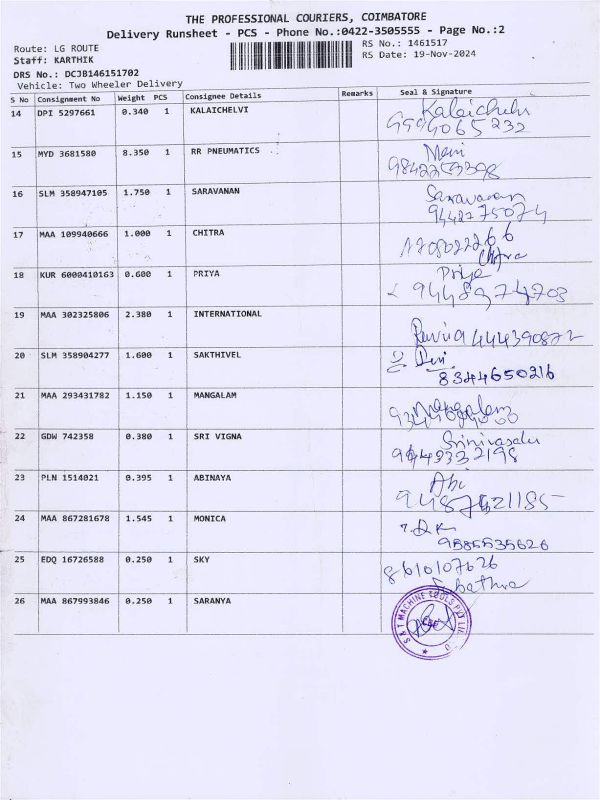 THE PROFESSIONAL COURIERS, COIMBATORE
Delivery Runsheet - PCS - Phone No.:0422-3505555 - Page No.:2
Route: LG ROUTE
RS No.: 1461517
Staff: KARTHIK
RS Date: 19-Nov-2024
DRS No.: DCJB146151702
Vehicle: Two Wheeler Delivery
S No Consignment No Weight PCS Consignee Details Remarks Seal & Signature
14 DPI 5297661 0.340 1 KALAICHELVI Kalaichelvi
9994065232
15 MYD 3681580 8.350 1 RR PNEUMATICS Mani
16 SLM 358947105 1.750 1 SARAVANAN Saravanan
9442275074
17 MAA 109940666 1.000 1 CHITRA
Chitra
18 KUR 6000410163 0.600 1 PRIYA Priya
19 MAA 302325806 2.380 1 INTERNATIONAL
20 SLM 358904277 1.600 1 SAKTHIVEL
8344650216
21 MAA 293431782 1.150 1 MANGALAM Mangalam
22 GDW 742358 0.380 1 SRI VIGNA
23 PLN 1514021 0.395 1 ABINAYA Abi
24 MAA 867281678 1.545 1 MONICA
9585535626
25 EDQ 16726588 0.250 1 SKY 8610107626
26 MAA 867993846 0.250 1 SARANYA
S & T MACHINE TOOLS PVT LTD